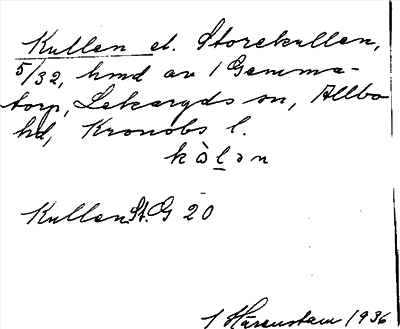 Kullen el. Storekullen,
5/32, hmd av 1 Gemma-
torp, Lekaryds sn, Allbo
hd, Kronobs l.
kòlən
Kullen St. G 20
1 Härenstam 1936